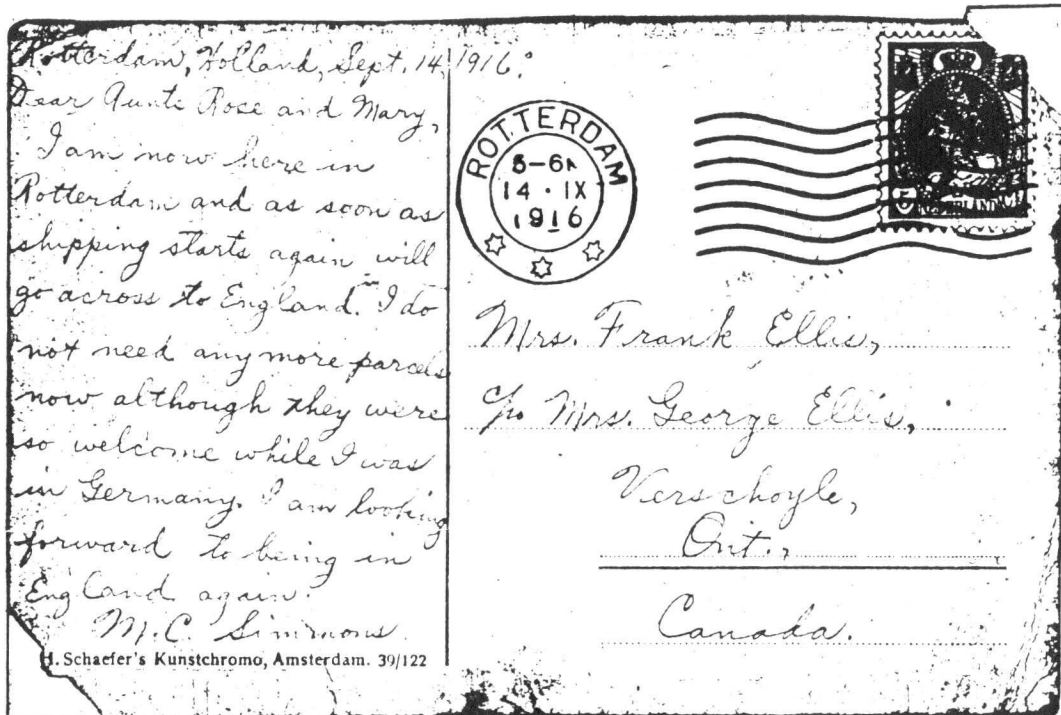 Rotterdam, Holland, Sept. 14, 1916.
Dear Aunts Rose and Mary,
I am now here in
Rotterdam and as soon as
shipping starts again will
go across to England. I do
not need any more parcels
now although they were
so welcome while I was
in Germany. I am looking
forward to being in
England again.
M. C. Simmons
H. Schaefer's Kunstchromo, Amsterdam. 39/122
ROTTERDAM
14 · IX
1916
5
Mrs. Frank Ellis,
c/o Mrs. George Ellis,
Verschoyle,
Ont.,
Canada.